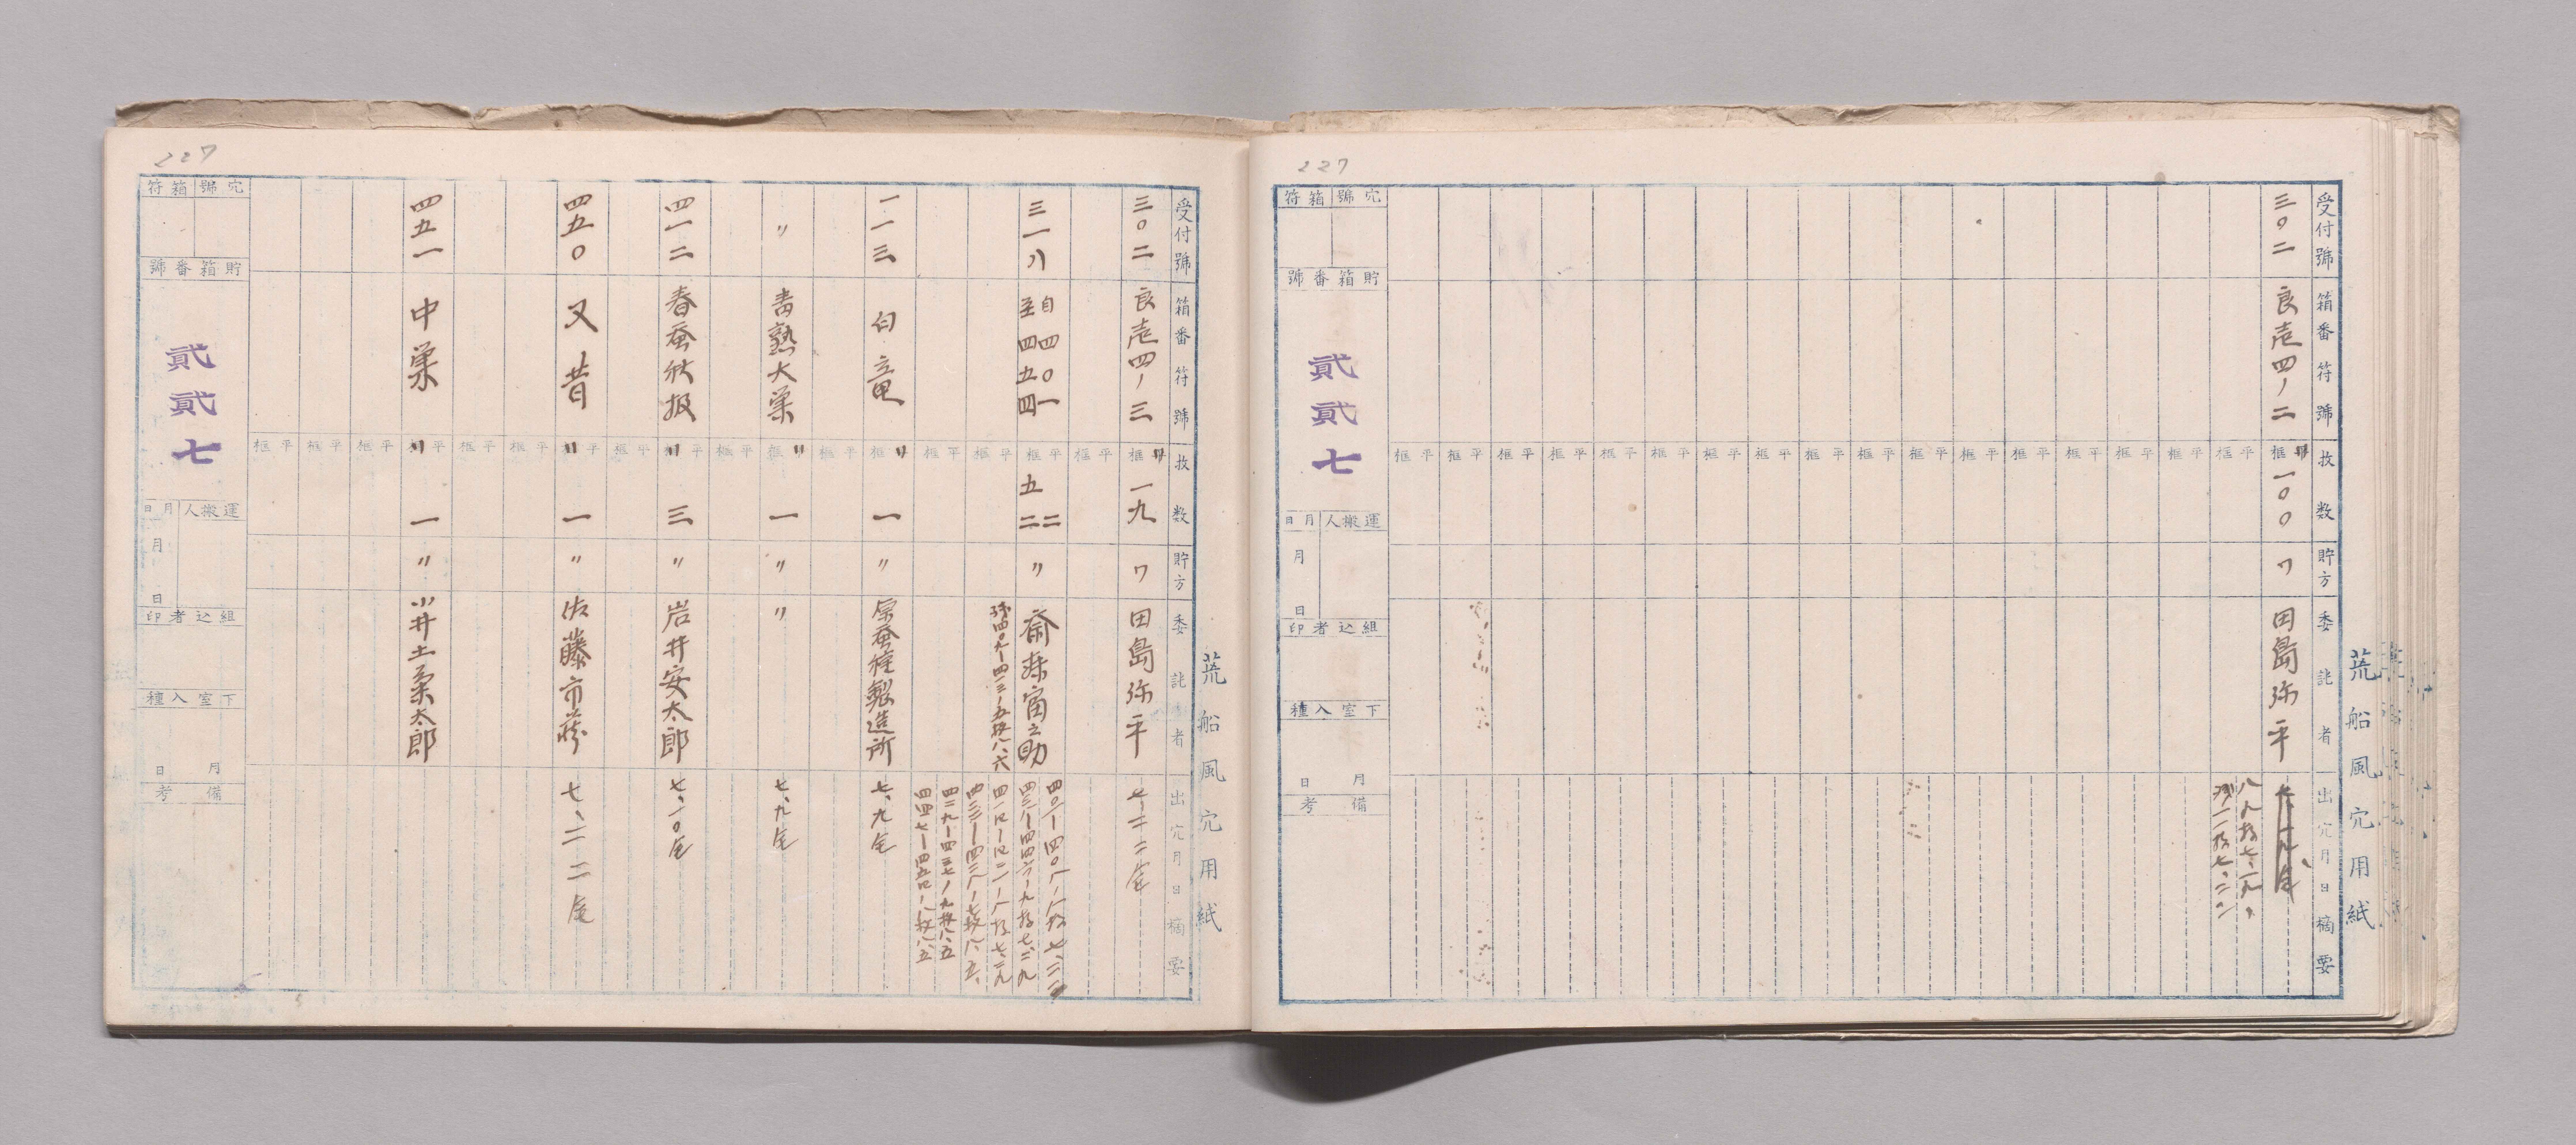 227
荒船風穴用紙
受付號
箱番符號
枚数
貯方
委託者
出穴月日摘要
三〇二
良壱四ノ二
一〇〇
ワ
田島弥平
八八枚七、一九、
残一二枚七、二二
平框
穴號
箱符
貯箱番號
貳貳七
運搬人
月日
月
日
組込者印
下室入種
月
日
備考
227
荒船風穴用紙
受付號
箱番符號
枚数
貯方
委託者
出穴月日摘要
三〇二
良壱四ノ三
一九
ワ
田島弥平
七、二二全
三一八
自四〇一
至四五四
二
五二
〃
四〇一―四〇八ノ八枚七、二二
四三八―四四六ノ九枚七、二九
四三三―四三八ノ七枚八、五、
四二九―四三七ノ九枚八、五
四四七―四五四ノ八枚八、五
一一三
白竜
一
〃
原蚕種製造所
七、九全
〃
青熟大巣
一
〃
〃
七、九全
四一二
春蚕秋扱
三
〃
岩井安太郎
七、一〇全
四五〇
又昔
一
〃
佐藤市蔵
七、二二全
四五一
中巣
一
〃
小井土桑太郎
平框
穴號
箱符
貯箱番號
貳貳七
運搬人
月日
月
日
組込者印
下室入種
月
日
備考